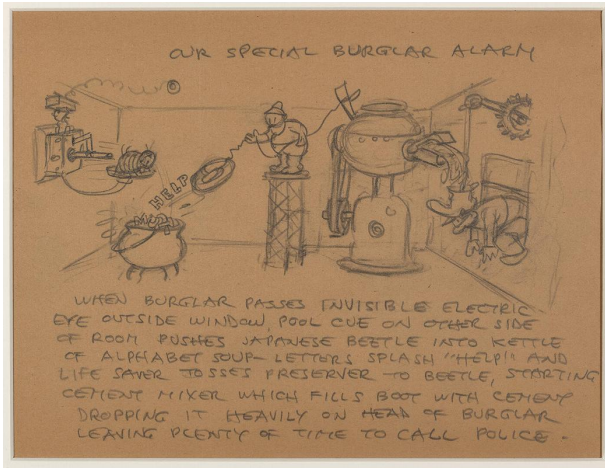 OUR SPECIAL BURGLAR ALARM
HELP
WHEN BURGLAR PASSES INVISIBLE ELECTRIC
EYE OUTSIDE WINDOW, POOL CUE ON OTHER SIDE
OF ROOM PUSHES JAPANESE BEETLE INTO KETTLE
OF ALPHABET SOUP - LETTERS SPLASH "HELP" AND
LIFE SAVER TOSSES PRESERVER TO BEETLE, STARTING
CEMENT MIXER WHICH FILLS BOOT WITH CEMENT
DROPPING IT HEAVILY ON HEAD OF BURGLAR
LEAVING PLENTY OF TIME TO CALL POLICE -